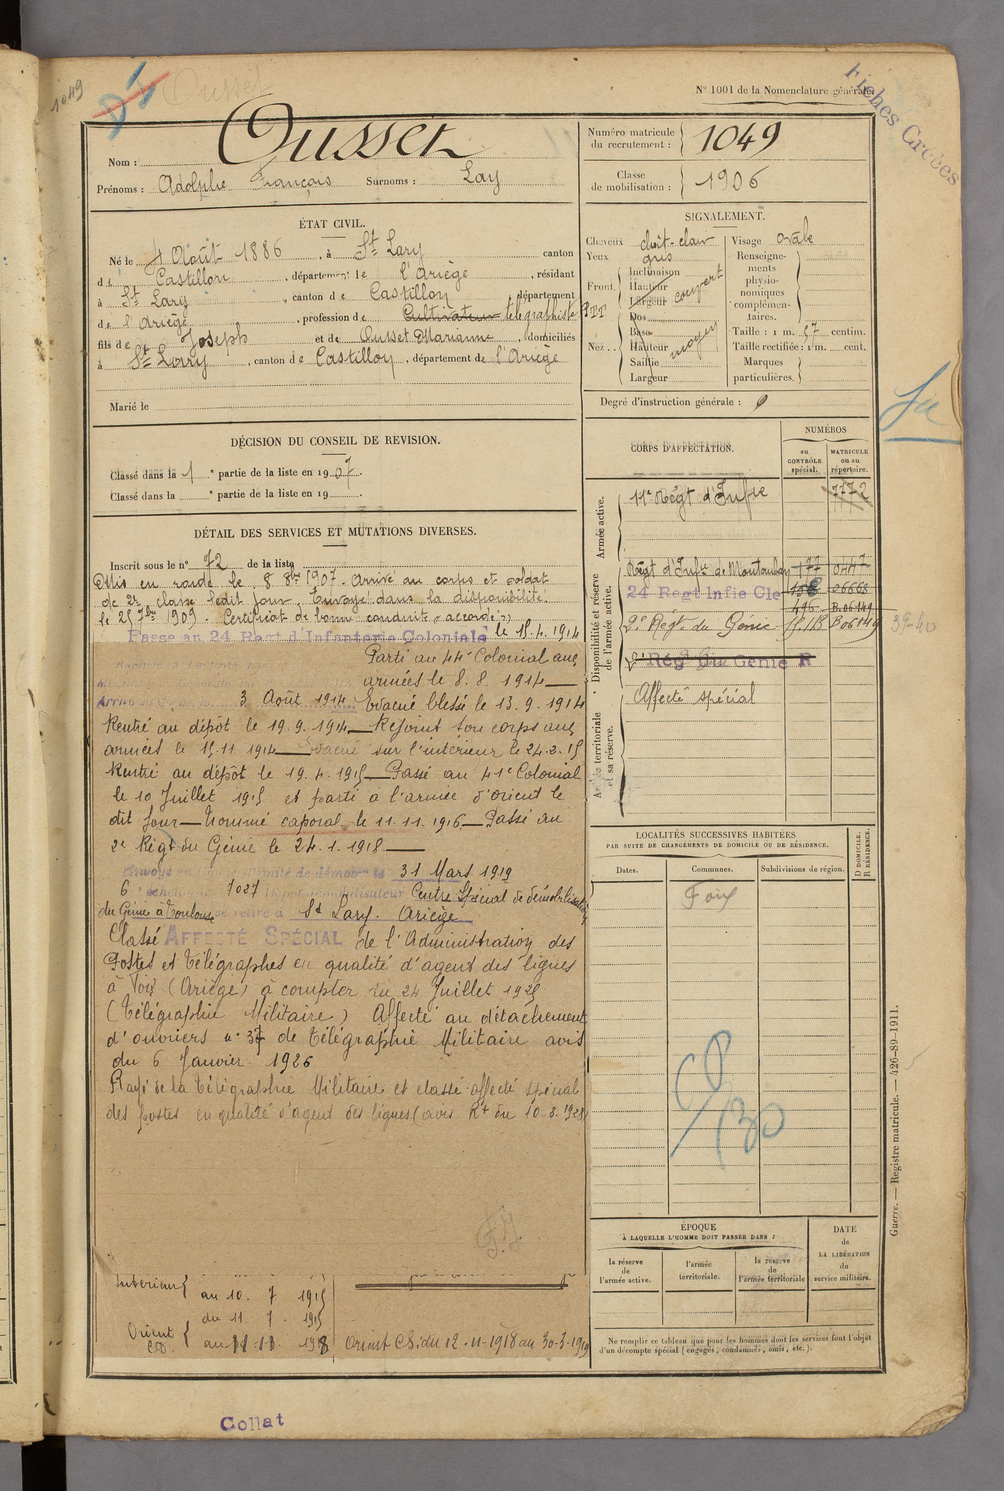 1049
N° 1001 de la Nomenclature générale.
Fiches Créées
Nom : Ousset
Prénoms : Adolphe François Surnoms : Lay
Numéro matricule du recrutement : 1049
Classe de mobilisation : 1906
ÉTAT CIVIL.
Né le 4 Août 1886, à St Lary canton
de Castillon, département de l'Ariège, résidant
à St Lary, canton de Castillon, département
de l'Ariège, profession de Cultivateur télégraphiste PTT
fils de Joseph et de Ousset Marianne, domiciliés
à St Lary, canton de Castillon, département de l'Ariège
Marié le
SIGNALEMENT.
Cheveux chât-clair Visage ovale
Yeux gris
Front Inclinaison Hauteur Largeur couvert
Nez Dos Base Hauteur Saillie Largeur moyen
Renseignements physionomiques complémentaires.
Taille : 1 m. 57 centim.
Taille rectifiée : 1 m. cent.
Marques particulières.
Degré d'instruction générale :
DÉCISION DU CONSEIL DE REVISION.
Classé dans la 1e partie de la liste en 1907.
Classé dans la e partie de la liste en 19
DÉTAIL DES SERVICES ET MUTATIONS DIVERSES.
Inscrit sous le n° 72 de la liste
Mis en route le 8 8bre 1907. Arrivé au corps et soldat
de 2e classe ledit jour. Envoyé dans la disponibilité
le 25 7bre 1909. Certificat de bonne conduite "accordé"
Passé au 24 Regt d'Infanterie Coloniale le 15.4.1914
Parti au 44e Colonial aux
armées le 8.8.1914
3 Août 1914 Evacué blessé le 13.9.1914
Rentré au dépôt le 19.9.1914 Rejoint son corps aux
armées le 15.11.1914 Evacué sur l'intérieur le 24.2.15
Rentré au dépôt le 19.4.1915 Passé au 41e Colonial
le 10 Juillet 1915 et parti à l'armée d'orient le
dit jour Nommé caporal le 11.11.1916 Passé au
2e Régt du Génie le 24.1.1918
31 Mars 1919
6 1027 Centre Spécial de démobilisation
du Génie à Toulouse se retire à St Lary. Ariège
Classé AFFECTÉ SPÉCIAL de l'Administration des
Postes et Télégraphes en qualité d'agent des lignes
à Foix (Ariège) à compter du 24 Juillet 1925
(Télégraphie Militaire) Affecté au détachement
d'ouvriers n° 37 de télégraphie Militaire avis
du 6 Janvier 1926
Rayé de la Télégraphie Militaire et classé affecté spécial
des postes en qualité d'agent des lignes (avis Rt du 10.3.1928)
Intérieur au 10. 7 1915
Orient du 11. 7. 1915
au 11 11. 1918
Orient CS. du 12-11-1918 au 30-3-1919
CORPS D'AFFECTATION.
NUMÉROS
au CONTRÔLE spécial.
MATRICULE ou au répertoire.
Armée active.
11e Régt d'Infie 7772
Disponibilité et réserve de l'armée active.
Régt d'Infie de Montauban
24 Regt Infie Cle 06668
2e Régt du Génie B06149
2e Régt du Génie R
Armée territoriale et sa réserve.
Affecté spécial
39-40
LOCALITÉS SUCCESSIVES HABITÉES
PAR SUITE DE CHANGEMENTS DE DOMICILE OU DE RÉSIDENCE.
Dates. Communes. Subdivisions de région. D DOMICILE. R RÉSIDENCE.
Foix
ÉPOQUE
À LAQUELLE L'HOMME DOIT PASSER DANS :
la réserve de l'armée active.
l'armée territoriale.
la réserve de l'armée territoriale
DATE de LA LIBÉRATION du service militaire.
Ne remplir ce tableau que pour les hommes dont les services font l'objet
d'un décompte spécial (engagés, condamnés, omis, etc.).
Guerre. — Registre matricule. — 426-89-1911.
Collat